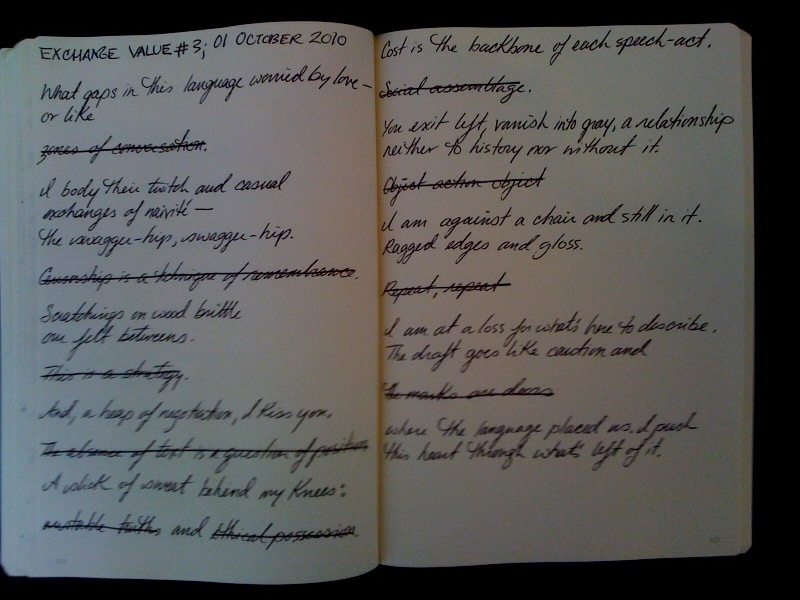 EXCHANGE VALUE #3; 01 OCTOBER 2010
What gaps in this language worried by love—
or like
zones of conversation.
I body their twitch and casual
exchanges of naivité—
the swagger-hip, swagger-hip.
Censorship is a technique of remembrance.
Scratchings on wood brittle
our felt betweens.
This is a strategy.
And, a heap of negotiation, I kiss you.
The absence of text is a question of position
A slick of sweat behind my knees:
unstable truths and ethical possession.
Cost is the backbone of each speech-act.
Social assemblage.
You exit left, vanish into gray, a relationship
neither to history nor without it.
Object action object
I am against a chair and still in it.
Ragged edges and gloss.
Repeat, repeat
I am at a loss for what's here to describe.
The draft goes like caution and
the marks are doors
where the language placed us. I push
this heart through what's left of it.